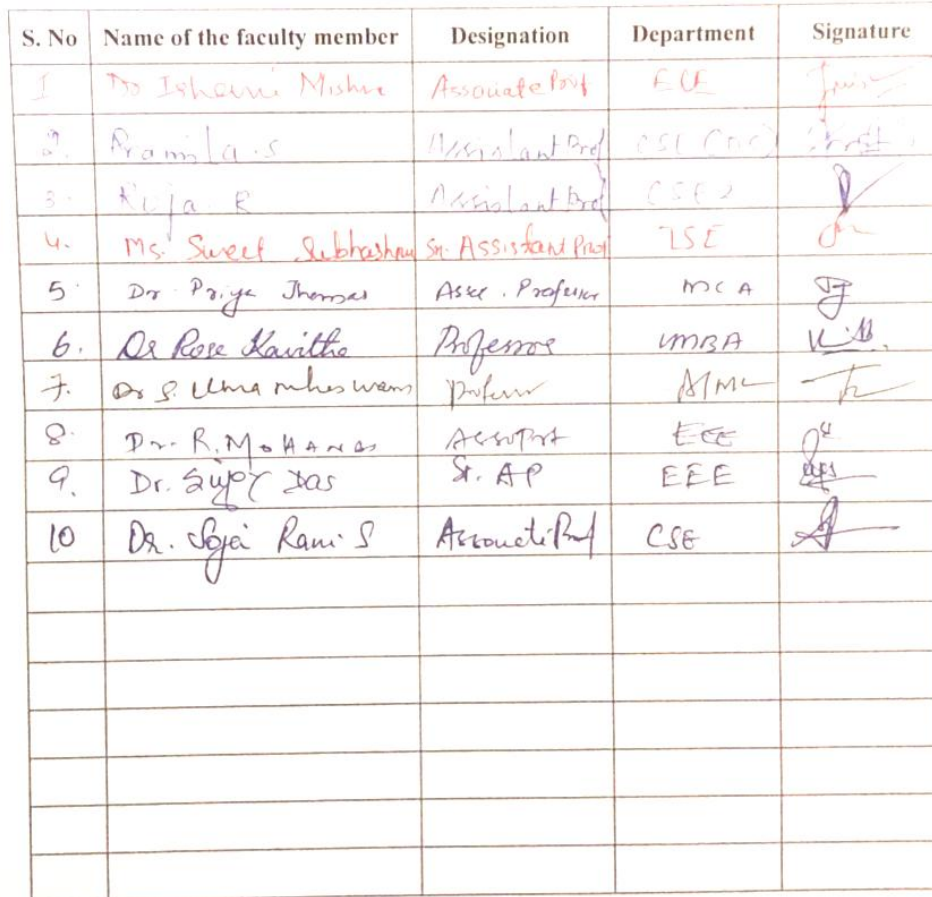 S. No Name of the faculty member Designation Department Signature
1 Dr Ishani Mishra Associate Prof ECE
2. Pramila.S Assistant Prof CSE
3. Assistant Prof CSE
4. Ms. Sweet Subhashree Sr. Assistant Prof ISE
5 Dr Priya Thomas Asso. Professor MCA
6. Dr Rose Kavitha Professor MBA
7. Dr S. Uma maheswari Professor AIML
8. Dr. R. MOHAN DAS EEE
9. Dr. Sujoy Das Sr. AP EEE
10 Dr. Soja Rani S Associate Prof CSE